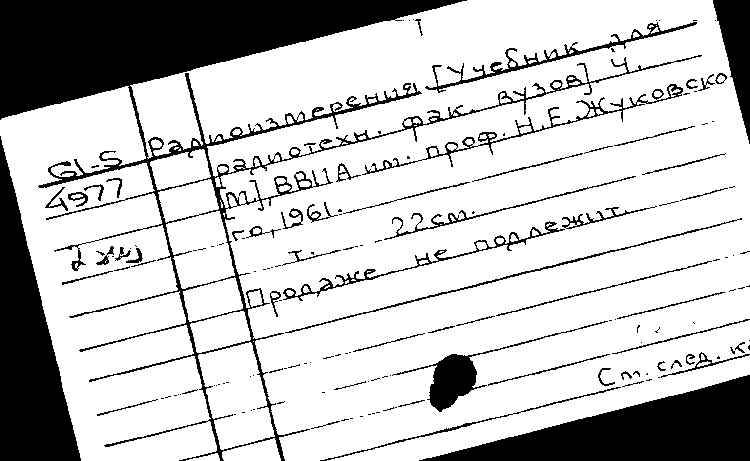 Радиоизмерения [Учебник для
61-5 радиотехн. фак. вузов] Ч.
4977 [М], ВВИА им. проф. Н.Е. Жуковско
го, 1961.
2 экз т. 22см.
Продаже не подлежит.
См. след. ка